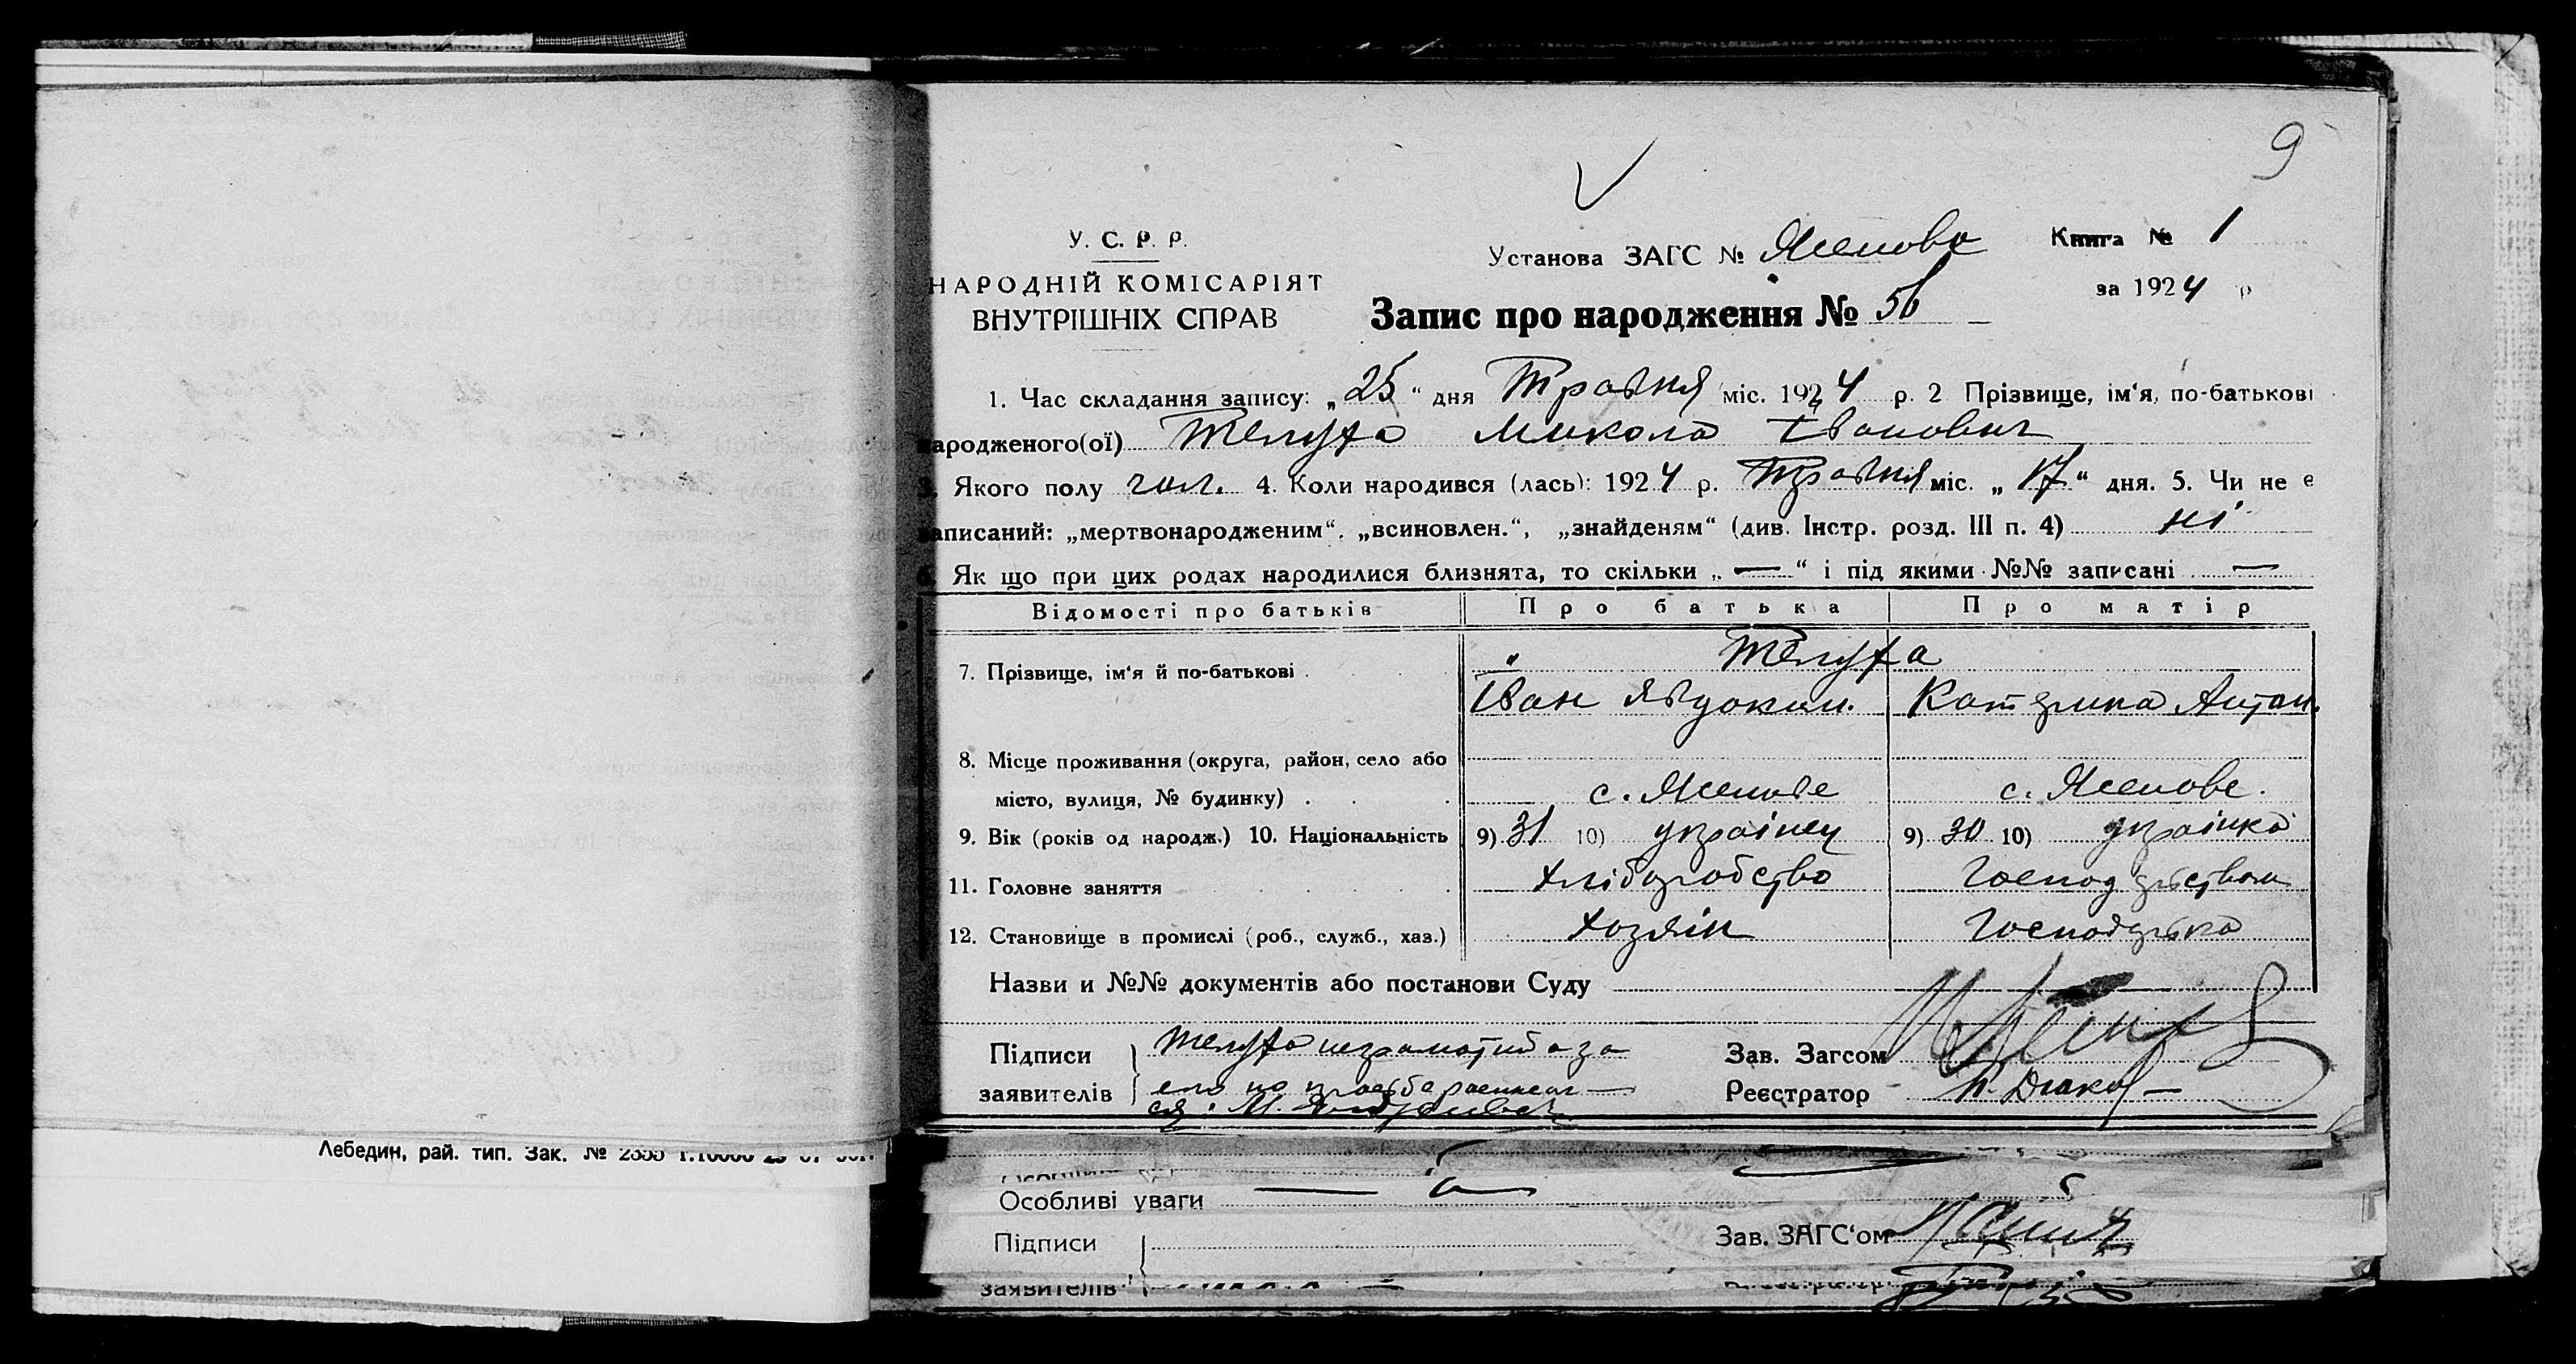 9
У. С. Р. Р.
НАРОДНІЙ КОМІСАРІЯТ
ВНУТРІШНІХ СПРАВ
Установа ЗАГС № Ясенова
Книга № 1
за 1924 р
Запис про народження № 56
1. Час складання запису: „25“ дня Травня міс. 1924 р. 2 Прізвище, ім‘я, по-батькові
народженого(ої) Телуха Микола Іванович
3. Якого полу чол. 4. Коли народився (лась): 1924 р. Травня міс. „17“ дня. 5. Чи не є
записаний: „мертвонародженим“, „всиновлен.“, „знайденям“ (див. Інстр. розд. III п. 4) ні
6. Як що при цих родах народилися близнята, то скільки „—“ і під якими №№ записані —
Відомості про батьків Про батька Про матір
Телуха
7. Прізвище, ім‘я й по-батькові
Іван Явдоким. Катерина Антон.
8. Місце проживання (округа, район, село або
місто, вулиця, № будинку) с. Ясенове с. Ясенове.
9. Вік (років од народж.) 10. Національність 9) 31 10) українец 9) 30 10) українка
11. Головне заняття хліборобство
12. Становище в промислі (роб., служб., хаз.) хозяїн Господарка
Назви и №№ документів або постанови Суду
Підписи Телуха неграмотный а за Зав. Загсом
заявителів его по просьбе Реєстратор
ся: М.
Лебедин, рай. тип. Зак. №
Особливі уваги
Підписи Зав. ЗАГС‘ом
заявителів